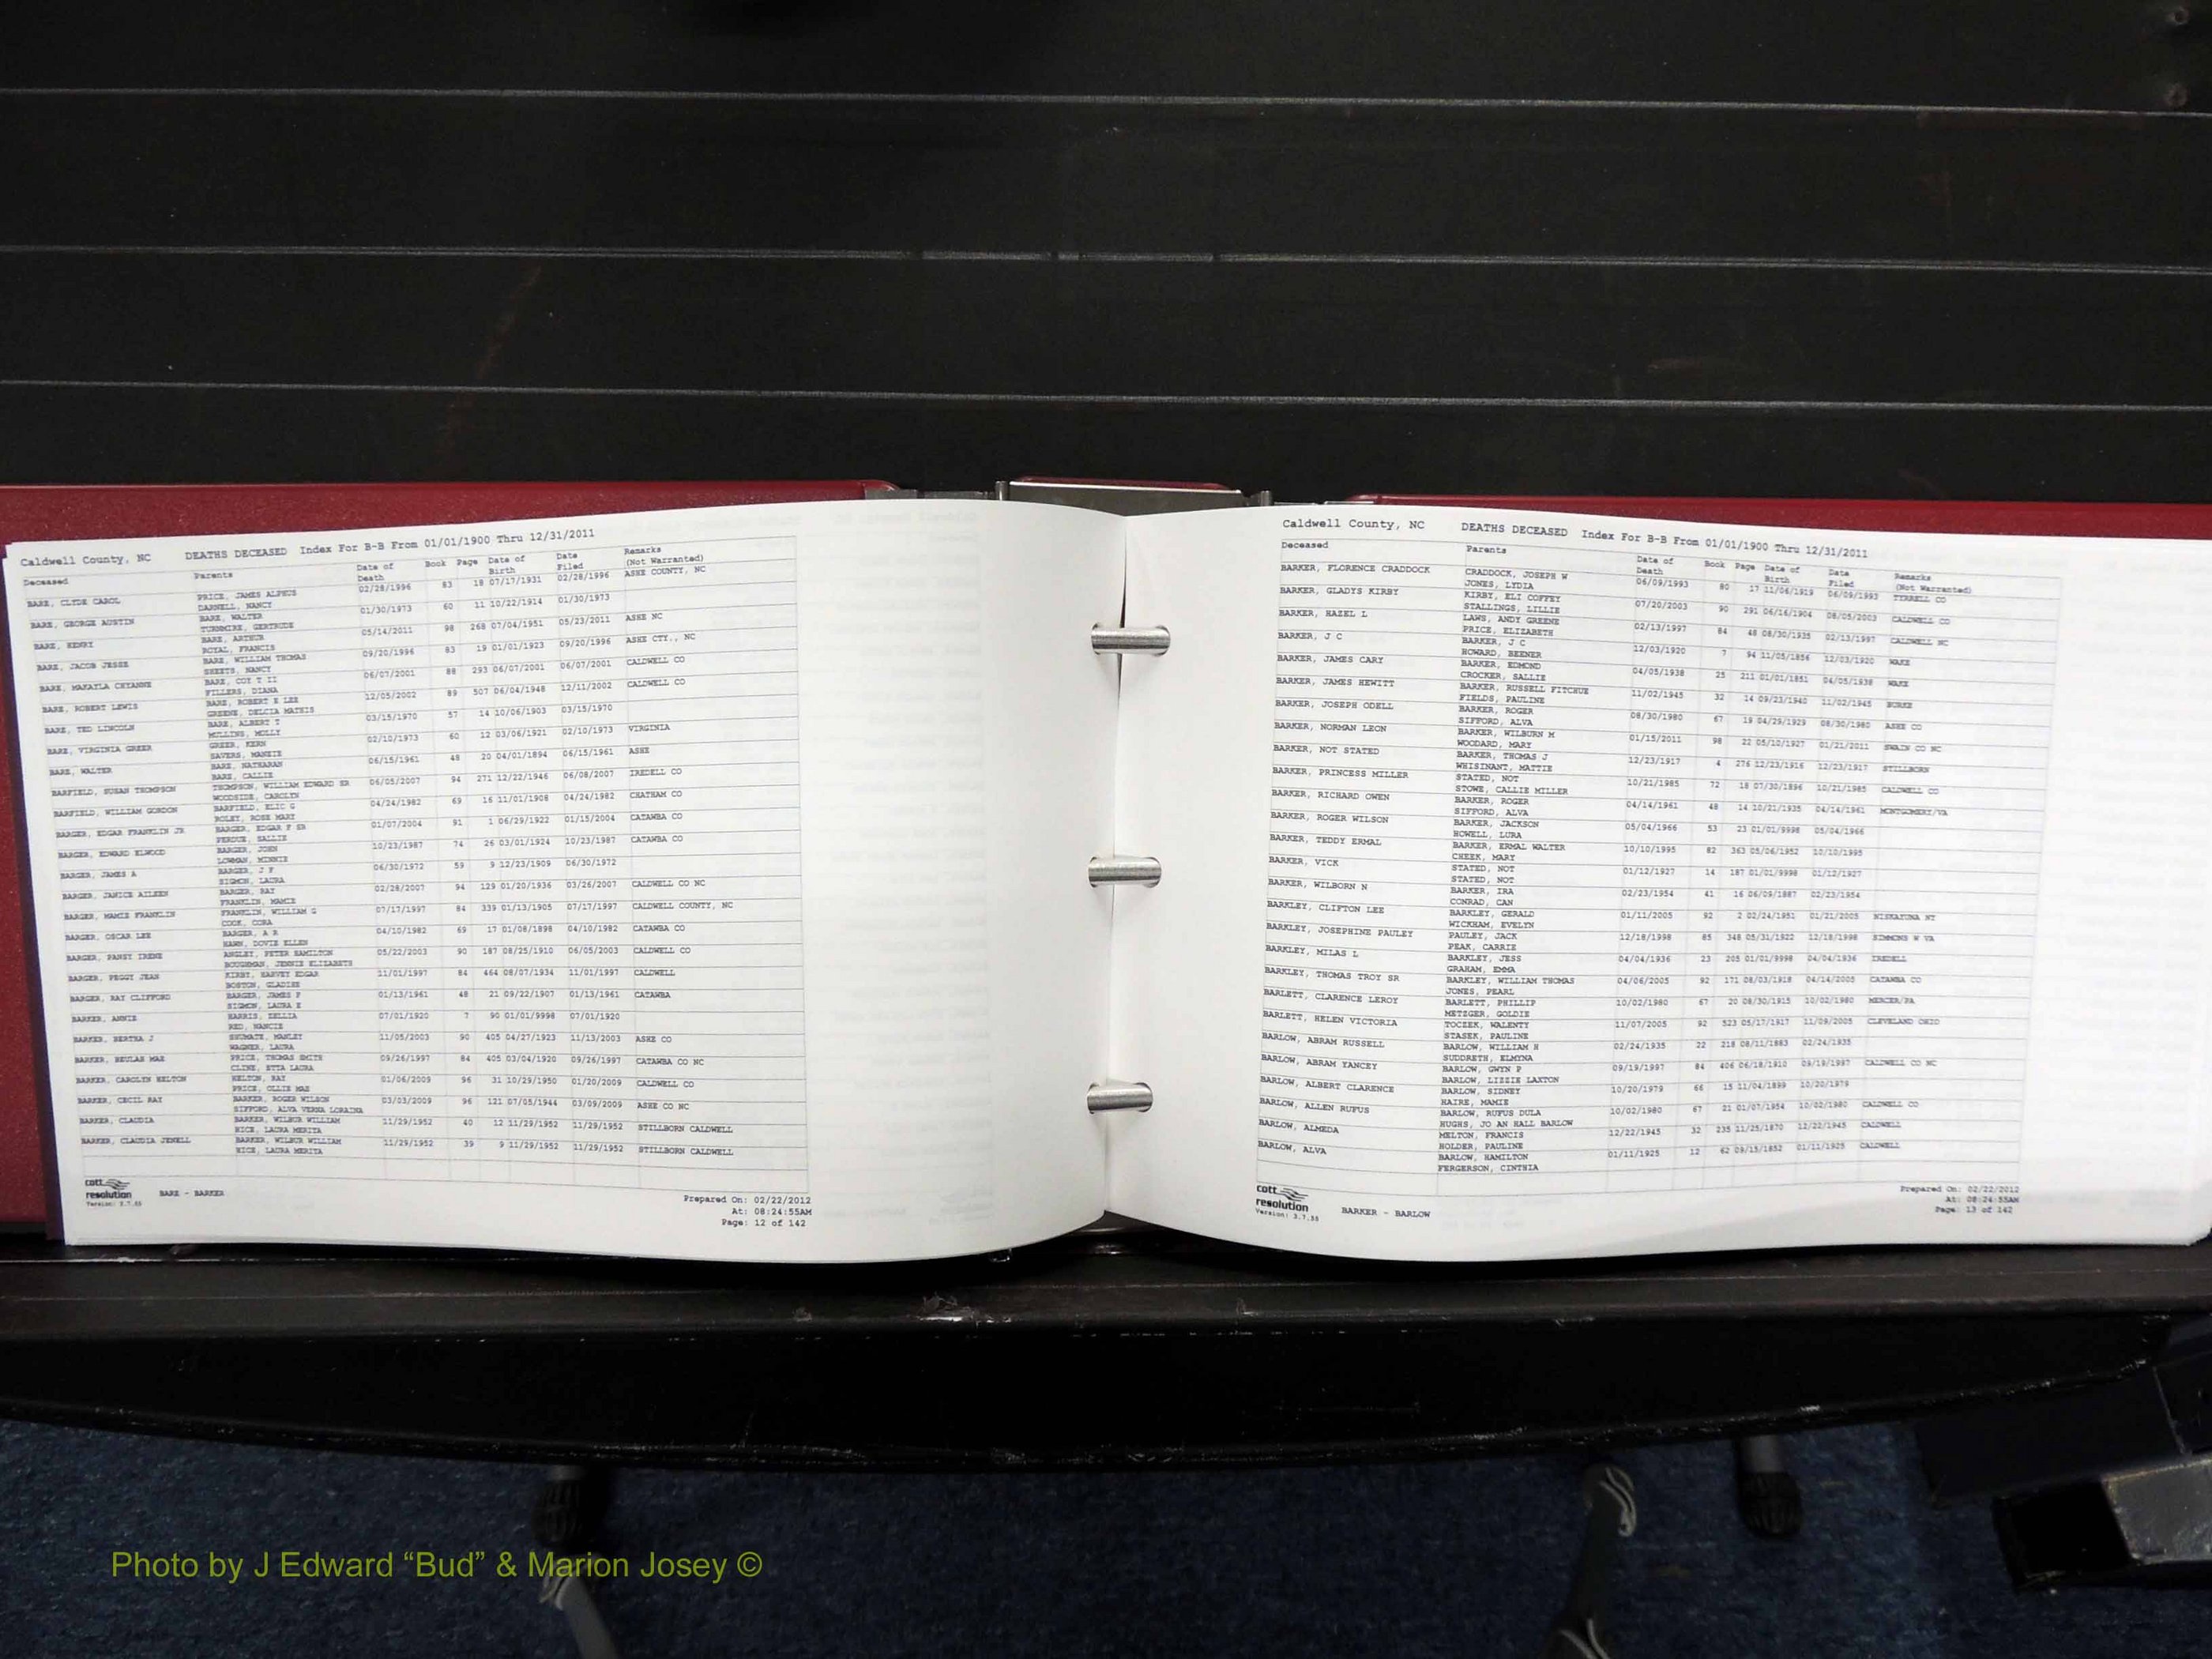 Caldwell County, NC DEATHS DECEASED Index For B-B From 01/01/1900 Thru 12/31/2011
Deceased Parents Date of Death Book Page Date of Birth Date Filed Remarks (Not Warranted)
BARE, CLYDE CAROL PRICE, JAMES ALPHUS 02/28/1996 83 18 07/17/1931 02/28/1996 ASHE COUNTY, NC
DARNELL, NANCY
BARE, GEORGE AUSTIN BARE, WALTER 01/30/1973 60 11 10/22/1914 01/30/1973
TURNMIRE, GERTRUDE
BARE, HENRY BARE, ARTHUR 05/14/2011 98 268 07/04/1951 05/23/2011 ASHE NC
ROYAL, FRANCIS
BARE, JACOB JESSE BARE, WILLIAM THOMAS 09/20/1996 83 19 01/01/1923 09/20/1996 ASHE CTY., NC
SHEETS, NANCY
BARE, MAKAYLA CHYANNE BARE, COY T II 06/07/2001 88 293 06/07/2001 06/07/2001 CALDWELL CO
FILLERS, DIANA
BARE, ROBERT LEWIS BARE, ROBERT E LEE 12/05/2002 89 507 06/04/1948 12/11/2002 CALDWELL CO
GREENE, DELCIA MATHIS
BARE, TED LINCOLN BARE, ALBERT T 03/15/1970 57 14 10/06/1903 03/15/1970
MULLINS, MOLLY
BARE, VIRGINIA GREER GREER, KERN 02/10/1973 60 12 03/06/1921 02/10/1973 VIRGINIA
SAVERS, MANSIE
BARE, WALTER BARE, NATHARAN 06/15/1961 48 20 04/01/1894 06/15/1961 ASHE
BARE, CALLIE
BARFIELD, SUSAN THOMPSON THOMPSON, WILLIAM EDWARD SR 06/05/2007 94 271 12/22/1946 06/08/2007 IREDELL CO
WOODSIDE, CAROLYN
BARFIELD, WILLIAM GORDON BARFIELD, ELIC G 04/24/1982 69 16 11/01/1908 04/24/1982 CHATHAM CO
ROLEY, ROSE MARY
BARGER, EDGAR FRANKLIN JR BARGER, EDGAR F SR 01/07/2004 91 1 06/29/1922 01/15/2004 CATAWBA CO
PERDUE, SALLIE
BARGER, EDWARD ELWOOD BARGER, JOHN 10/23/1987 74 26 03/01/1924 10/23/1987 CATAWBA CO
LOWMAN, MINNIE
BARGER, JAMES A BARGER, J F 06/30/1972 59 9 12/23/1909 06/30/1972
SIGMON, LAURA
BARGER, JANICE AILEEN BARGER, RAY 02/28/2007 94 129 01/20/1936 03/26/2007 CALDWELL CO NC
FRANKLIN, MAMIE
BARGER, MAMIE FRANKLIN FRANKLIN, WILLIAM G 07/17/1997 84 339 01/13/1905 07/17/1997 CALDWELL COUNTY, NC
COOK, CORA
BARGER, OSCAR LEE BARGER, A R 04/10/1982 69 17 01/08/1898 04/10/1982 CATAWBA CO
HAHN, DOVIE ELLEN
BARGER, PANSY IRENE ANGLEY, PETER HAMILTON 05/22/2003 90 187 08/25/1910 06/05/2003 CALDWELL CO
BOUGHMAN, JENNIE ELIZABETH
BARGER, PEGGY JEAN KIRBY, HARVEY EDGAR 11/01/1997 84 464 08/07/1934 11/01/1997 CALDWELL
BOSTON, GLADIES
BARGER, RAY CLIFFORD BARGER, JAMES P 01/13/1961 48 21 09/22/1907 01/13/1961 CATAWBA
SIGMON, LAURA E
BARKER, ANNIE HARRIS, ZELLIA 07/01/1920 7 90 01/01/9998 07/01/1920
RED, NANCIE
BARKER, BERTHA J SHUMATE, MANLEY 11/05/2003 90 405 04/27/1923 11/13/2003 ASHE CO
WAGNER, LAURA
BARKER, BEULAH MAE PRICE, THOMAS SMITH 09/26/1997 84 405 03/04/1920 09/26/1997 CATAWBA CO NC
CLINE, ETTA LAURA
BARKER, CAROLYN HELTON HELTON, RAY 01/06/2009 96 31 10/29/1950 01/20/2009 CALDWELL CO
PRICE, OLLIE MAE
BARKER, CECIL RAY BARKER, ROGER WILSON 03/03/2009 96 121 07/05/1944 03/09/2009 ASHE CO NC
SIFFORD, ALVA VERNA LORAINA
BARKER, CLAUDIA BARKER, WILBUR WILLIAM 11/29/1952 40 12 11/29/1952 11/29/1952 STILLBORN CALDWELL
HICE, LAURA MERITA
BARKER, CLAUDIA JEWELL BARKER, WILBUR WILLIAM 11/29/1952 39 9 11/29/1952 11/29/1952 STILLBORN CALDWELL
HICE, LAURA MERITA
cott
resolution
Version: 3.7.55
BARE - BARKER
Prepared On: 02/22/2012
At: 08:24:55AM
Page: 12 of 142
Caldwell County, NC DEATHS DECEASED Index For B-B From 01/01/1900 Thru 12/31/2011
Deceased Parents Date of Death Book Page Date of Birth Date Filed Remarks (Not Warranted)
BARKER, FLORENCE CRADDOCK CRADDOCK, JOSEPH W 06/09/1993 80 17 11/06/1919 06/09/1993 TYRRELL CO
JONES, LYDIA
BARKER, GLADYS KIRBY KIRBY, ELI COFFEY 07/20/2003 90 291 06/16/1904 08/05/2003 CALDWELL CO
STALLINGS, LILLIE
BARKER, HAZEL L LAWS, ANDY GREENE 02/13/1997 84 48 08/30/1935 02/13/1997 CALDWELL NC
PRICE, ELIZABETH
BARKER, J C BARKER, J C 12/03/1920 7 94 11/05/1856 12/03/1920 WAKE
HOWARD, BEENER
BARKER, JAMES CARY BARKER, EDMOND 04/05/1938 25 211 01/01/1851 04/05/1938 WAKE
CROCKER, SALLIE
BARKER, JAMES HEWITT BARKER, RUSSELL FITCHUE 11/02/1945 32 14 09/23/1940 11/02/1945 BURKE
FIELDS, PAULINE
BARKER, JOSEPH ODELL BARKER, ROGER 08/30/1980 67 19 04/29/1929 08/30/1980 ASHE CO
SIFFORD, ALVA
BARKER, NORMAN LEON BARKER, WILBURN M 01/15/2011 98 22 05/10/1927 01/21/2011 SWAIN CO NC
WOODARD, MARY
BARKER, NOT STATED BARKER, THOMAS J 12/23/1917 4 276 12/23/1916 12/23/1917 STILLBORN
WHISINANT, MATTIE
BARKER, PRINCESS MILLER STATED, NOT 10/21/1985 72 18 07/30/1896 10/21/1985 CALDWELL CO
STOWE, CALLIE MILLER
BARKER, RICHARD OWEN BARKER, ROGER 04/14/1961 48 14 10/21/1935 04/14/1961 MONTGOMERY/VA
SIFFORD, ALVA
BARKER, ROGER WILSON BARKER, JACKSON 05/04/1966 53 23 01/01/9998 05/04/1966
HOWELL, LURA
BARKER, TEDDY ERMAL BARKER, ERMAL WALTER 10/10/1995 82 363 05/06/1952 10/10/1995
CHEEK, MARY
BARKER, VICK STATED, NOT 01/12/1927 14 187 01/01/9998 01/12/1927
STATED, NOT
BARKER, WILBORN N BARKER, IRA 02/23/1954 41 16 06/09/1887 02/23/1954
CONRAD, CAN
BARKLEY, CLIFTON LEE BARKLEY, GERALD 01/11/2005 92 2 02/24/1951 01/21/2005 NISKAYUNA NY
WICKHAM, EVELYN
BARKLEY, JOSEPHINE PAULEY PAULEY, JACK 12/18/1998 85 348 05/31/1922 12/18/1998 SIMMONS W VA
PEAK, CARRIE
BARKLEY, MILAS L BARKLEY, JESS 04/04/1936 23 205 01/01/9998 04/04/1936 IREDELL
GRAHAM, EMMA
BARKLEY, THOMAS TROY SR BARKLEY, WILLIAM THOMAS 04/06/2005 92 171 08/03/1918 04/14/2005 CATAWBA CO
JONES, PEARL
BARLETT, CLARENCE LEROY BARLETT, PHILLIP 10/02/1980 67 20 08/30/1915 10/02/1980 MERCER/PA
METZGER, GOLDIE
BARLETT, HELEN VICTORIA TOCZEK, WALENTY 11/07/2005 92 523 05/17/1917 11/09/2005 CLEVELAND OHIO
STASEK, PAULINE
BARLOW, ABRAM RUSSELL BARLOW, WILLIAM H 02/24/1935 22 218 08/11/1883 02/24/1935
SUDDRETH, ELMYNA
BARLOW, ABRAM YANCEY BARLOW, GWYN P 09/19/1997 84 406 06/18/1910 09/19/1997 CALDWELL CO NC
BARLOW, LIZZIE LAXTON
BARLOW, ALBERT CLARENCE BARLOW, SIDNEY 10/20/1979 66 15 11/04/1899 10/20/1979
HAIRE, MAMIE
BARLOW, ALLEN RUFUS BARLOW, RUFUS DULA 10/02/1980 67 21 01/07/1954 10/02/1980 CALDWELL CO
HUGHS, JO AN HALL BARLOW
BARLOW, ALMEDA MELTON, FRANCIS 12/22/1945 32 235 11/25/1870 12/22/1945 CALDWELL
HOLDER, PAULINE
BARLOW, ALVA BARLOW, HAMILTON 01/11/1925 12 62 09/15/1852 01/11/1925 CALDWELL
FERGERSON, CINTHIA
cott
resolution
Version: 3.7.55
BARKER - BARLOW
Prepared On: 02/22/2012
At: 08:24:55AM
Page: 13 of 142
Photo by J Edward “Bud” & Marion Josey ©